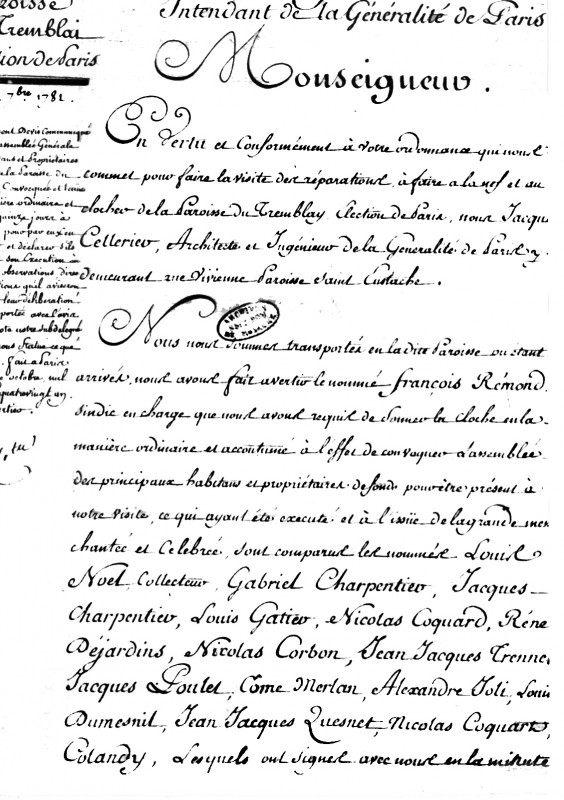 Paroisse
Tremblai
tion de Paris
7bre 1781.
ont Devis Communiqué
assemblée Générale
ans et Propriétaires
la Paroisse du
Convoquée et tenue
ière ordinaire et
quinze jours à
pour par eux en
et déclarer s'ils
son Exécution à
observations dires
ions quel aviseron
leur délibération
portée avec l'avis
ota notre subdélégué
ous statué ce que
fait à Paris
e octobre, mil
quatrevingt un.
rtier.
Intendant de la Généralité de Paris
Monseigneur.
En Vertu et Conformément à Votre ordonnance qui nous
commet pour faire la visite des réparations à faire a la nef et au
clocher de la Paroisse du Tremblay Election de Paris, nous Jacqu
Cellerier, Architecte et Ingénieur de la Generalité de Paris
demeurant rue Vivienne Paroisse Saint Eustache.
ARCHIVES
Nous nous sommes transportés en la dite Paroisse ou étant
arrivés, nous avons fait avertir le nommé françois Rémond
sindic en charge que nous avons requis de sonner la cloche en la
manière ordinaire et accoutumé à l'effet de convoquer l'assemblée
des principaux habitans et propriétaires de fonds pour être présent à
notre visite, ce qui ayant été executé et à l'issüe de la grande mes
chantée et Celebrée, sont comparus les nommés Louis
Noel, Collecteur, Gabriel Charpentier, Jacques
Charpentier, Louis Gatier, Nicolas Coquard, Réne
Dejardins, Nicolas Corbon, Jean Jacques Trenne
Jacques Poulet, Côme Merlan, Alexandre Joli, Louis
Dumesnil, Jean Jacques Quesnet, Nicolas Coquart,
Colandy, Lesquels ont signés avec nous en la minute